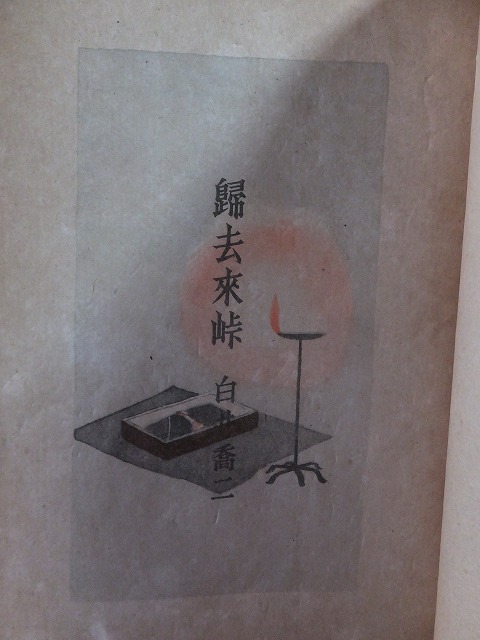 歸去來峠
白井喬二